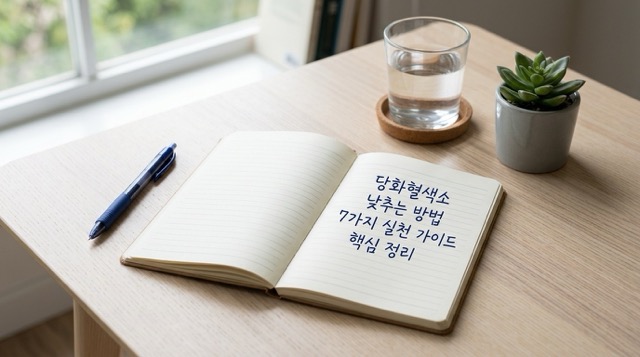 당화혈색소
낮추는 방법
7가지 실천 가이드
핵심 정리